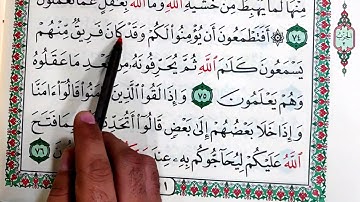 مِنْهَا لَمَا يَهْبِطُ مِنْ خَشْيَةِ اللَّهِ وَمَا اللَّهُ بِغَافِلٍ عَمَّا تَعْمَلُونَ
٧٤ أَفَتَطْمَعُونَ أَن يُؤْمِنُوا لَكُمْ وَقَدْ كَانَ فَرِيقٌ مِّنْهُمْ
يَسْمَعُونَ كَلَامَ اللَّهِ ثُمَّ يُحَرِّفُونَهُ مِن بَعْدِ مَا عَقَلُوهُ
وَهُمْ يَعْلَمُونَ ٧٥ وَإِذَا لَقُوا الَّذِينَ آمَنُوا قَالُوا آمَنَّا
وَإِذَا خَلَا بَعْضُهُمْ إِلَىٰ بَعْضٍ قَالُوا أَتُحَدِّثُونَهُم بِمَا فَتَحَ
اللَّهُ عَلَيْكُمْ لِيُحَاجُّوكُم بِهِ عِندَ ٧٦